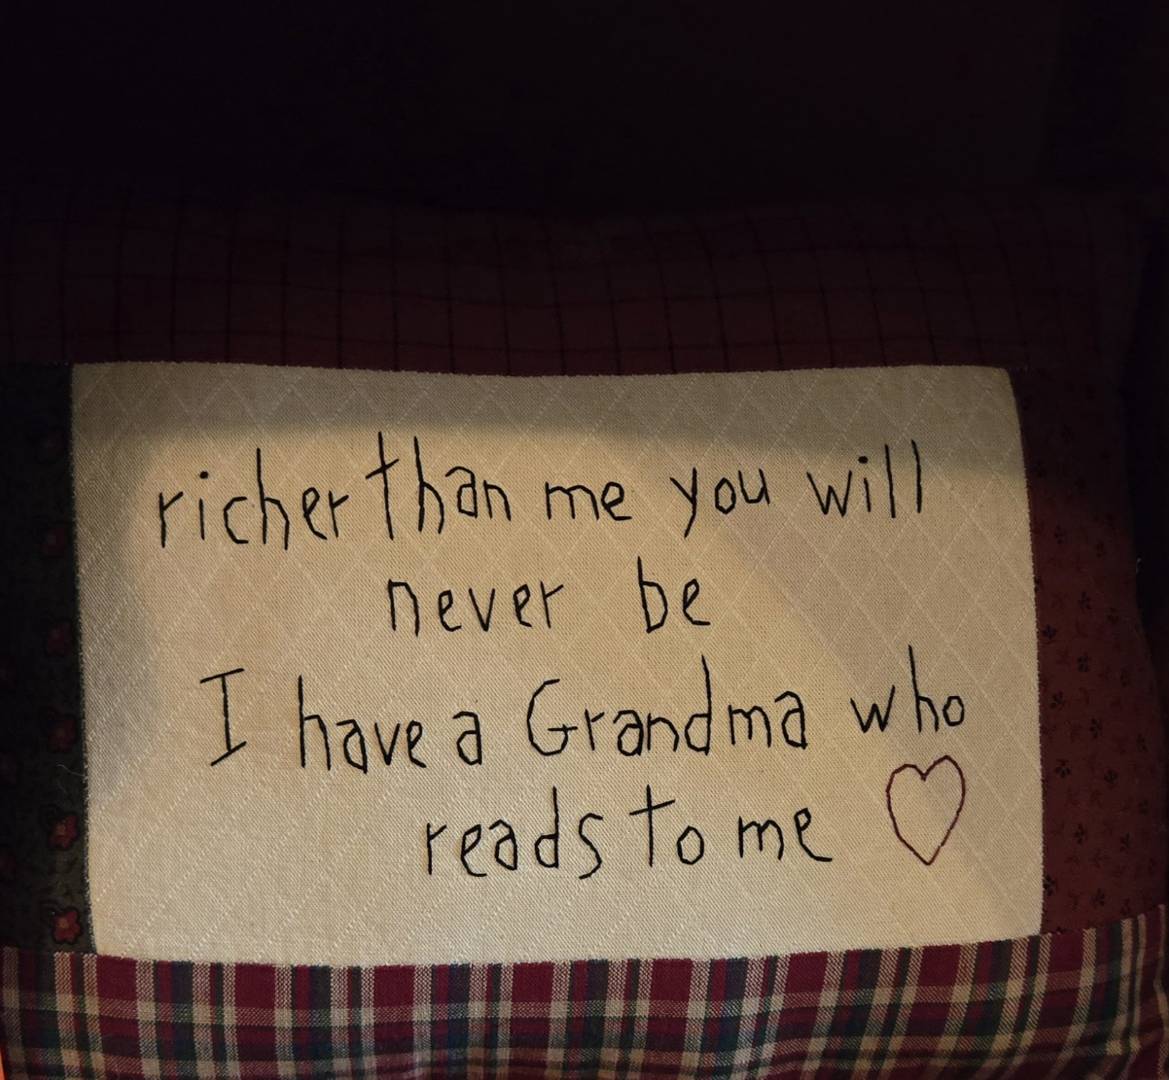 richer than me you will
never be
I have a Grandma who
reads to me